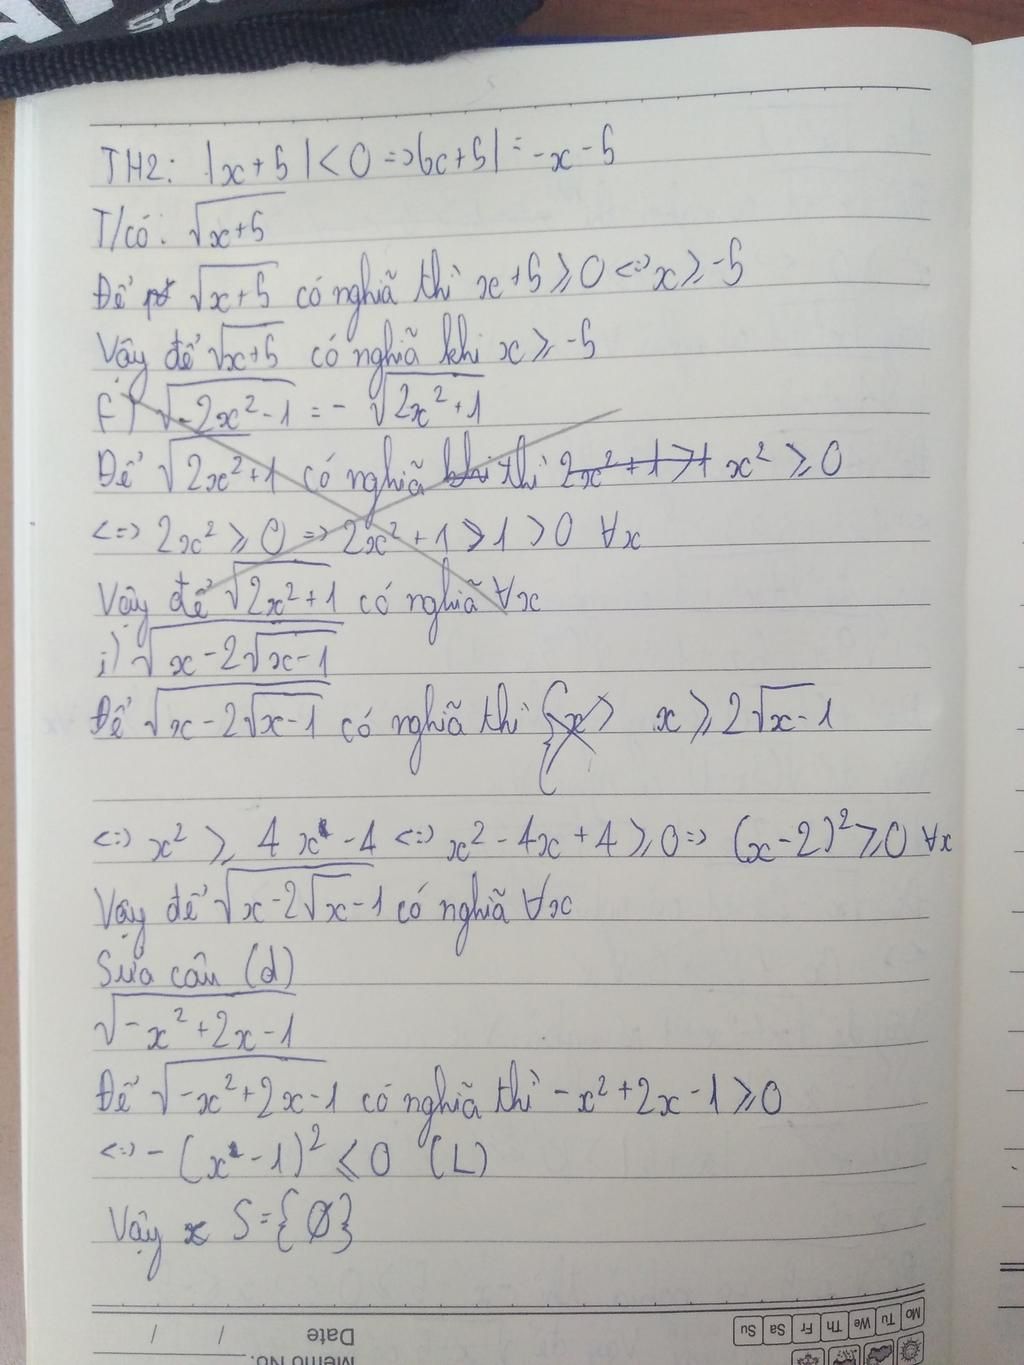 SP
TH2: |x+5| < 0 => |x+5| = -x - 5
T/có: √x+5
Để √x+5 có nghĩã thì x+5 ⩾ 0 <=> x ⩾ -5
Vậy để √x+5 có nghĩã khi x ⩾ -5
f) √-2x²-1 = - √2x²+1
Để √2x²+1 có nghĩã khi thì 2x²+1 ⩾ 1 x² ⩾ 0
<=> 2x² ⩾ 0 => 2x²+1 ⩾ 1 > 0 ∀x
Vậy để √2x²+1 có nghĩã ∀x
i) √x-2√x-1
Để √x-2√x-1 có nghĩã thì {x> x ⩾ 2√x-1
<=> x² ⩾ 4x - 4 <=> x² - 4x + 4 ⩾ 0 => (x-2)² ⩾ 0 ∀x
Vậy để √x-2√x-1 có nghĩã ∀x
Sửa câu (d)
√-x²+2x-1
Để √-x²+2x-1 có nghĩã thì -x²+2x-1 ⩾ 0
<=> -(x-1)² ⩽ 0 (L)
Vậy x S={Ø}
Date / /
Mo Tu We Th Fr Sa Su
Memo No.